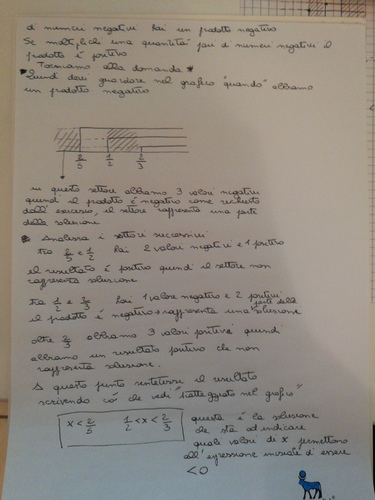 di numeri negativi hai un prodotto negativo
Se moltiplichi una quantità pari di numeri negativi il
prodotto è positivo
Torniamo alla domanda
Quindi devi guardare nel grafico "quando" abbiamo
un prodotto negativo
2/5 1/2 2/3
in questo settore abbiamo 3 valori negativi
quindi il prodotto è negativo come richiesto
dall'esercizio, il settore rappresenta una parte
della soluzione
Analizza i settori successivi
tra 2/5 e 1/2 hai 2 valori negativi e 1 positivo
il risultato è positivo quindi il settore non
rappresenta soluzione
tra 1/2 e 2/3 hai 1 valore negativo e 2 positivi
il prodotto è negativo → rappresenta una parte della soluzione
oltre 2/3 abbiamo 3 valori positivi quindi
abbiamo un risultato positivo che non
rappresenta soluzione.
A questo punto sintetizzi il risultato
scrivendo ciò che vedi "tratteggiato nel grafico"
x < 2/5 1/2 < x < 2/3
questa è la soluzione
che sta ad indicare
quali valori di x permettono
all'espressione iniziale d'essere
< 0